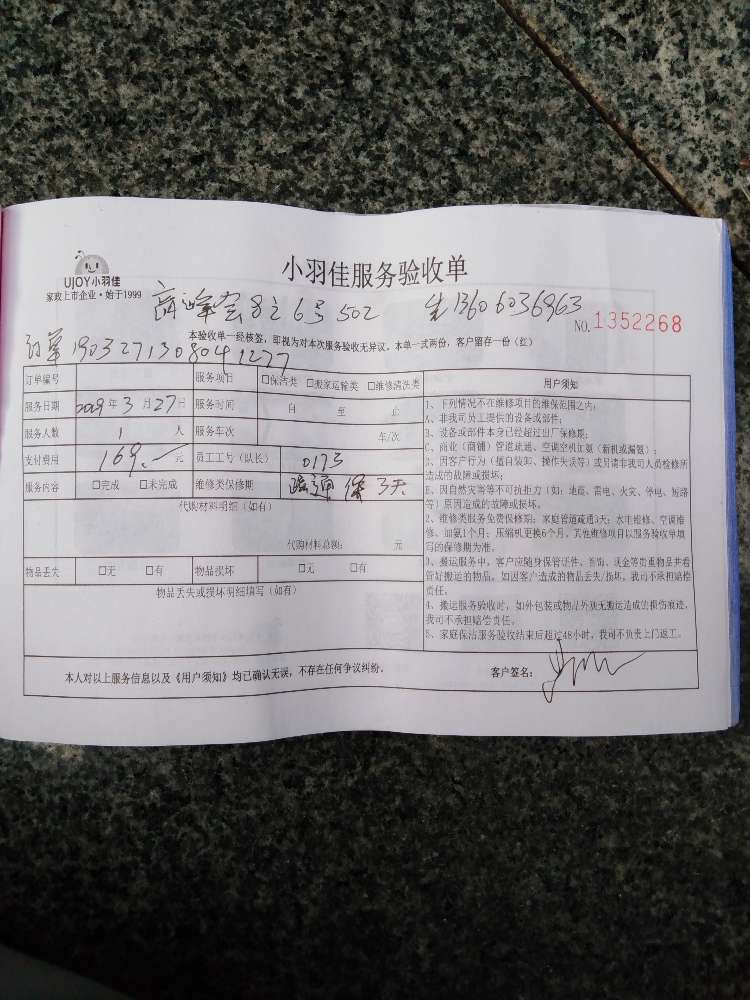 小羽佳服务验收单
UJOY小羽佳
家政上市企业·始于1999
8之6号502 13606036963
NO.1352268
本验收单一经核签，即视为对本次服务验收无异议。本单一式两份，客户留存一份（红）
订单1903271308041277
订单编号 服务项目 □保洁类 □搬家运输类 □维修清洗类
服务日期 2019年3月27日 服务时间 自 至 止
服务人数 1 人 服务车次 车/次
支付费用 169.— 元 员工工号（队长） 0173
服务内容 □完成 □未完成 维修类保修期 疏通保3天
代购材料明细（如有）
代购材料总额： 元
物品丢失 □无 □有 物品损坏 □无 □有
物品丢失或损坏明细填写（如有）
用户须知
1、下列情况不在维修项目的维保范围之内：
A、非我司员工提供的设备或部件；
B、设备或部件本身已经超过出厂保修期；
C、商业（商铺）管道疏通、空调空机加氨（新机或漏氨）；
D、因客户行为（擅自装卸、操作失误等）或另请非我司人员检修所
造成的故障或损坏；
E、因自然灾害等不可抗拒力（如：地震、雷电、火灾、停电、短路
等）原因造成的故障或损坏。
2、维修类服务免费保修期：家庭管道疏通3天；水电维修、空调维
修、加氨1个月；压缩机更换6个月。其他维修项目以服务验收单填
写的保修期为准。
3、搬运服务中，客户应随身保管证件、首饰、现金等贵重物品并看
管好搬运的物品。如因客户造成的物品丢失/损坏，我司不承担赔偿
责任。
4、搬运服务验收时，如外包装或物品外观无搬运造成的损伤痕迹，
我司不承担赔偿责任。
5、家庭保洁服务验收结束后超过48小时，我司不负责上门返工。
本人对以上服务信息以及《用户须知》均已确认无误，不存在任何争议纠纷。 客户签名：